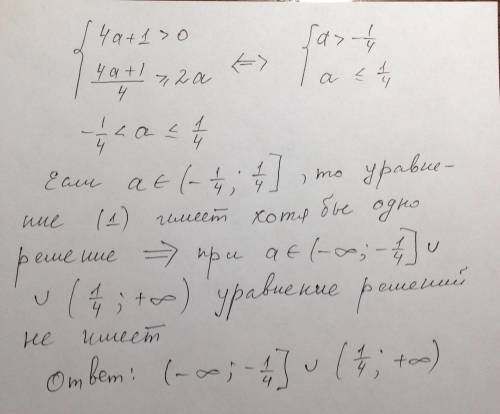 { 4a+1 > 0
{ (4a+1)/4 ⩾ 2a <=> { a > -1/4
{ a ≤ 1/4
-1/4 < a ≤ 1/4
Если a ∈ (-1/4; 1/4], то уравне-
ние (1) имеет хотя бы одно
решение => при a ∈ (-∞; -1/4] ∪
∪ (1/4; +∞) уравнение решений
не имеет
Ответ: (-∞; -1/4] ∪ (1/4; +∞)